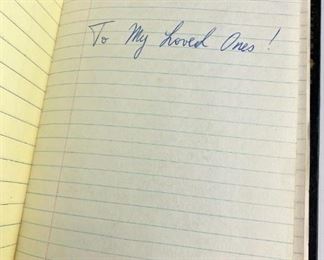 To My Loved Ones!